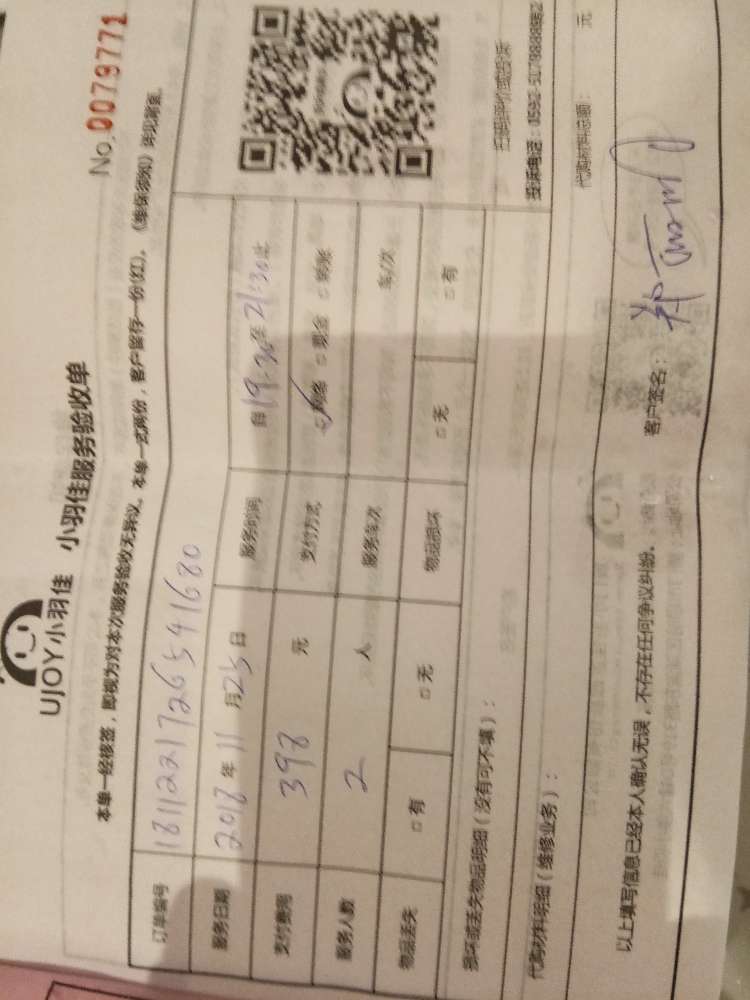 UJOY小羽佳 小羽佳服务验收单
No.0079771
本单一经核签，即视为对本次服务验收无异议。本单一式两份，客户留存一份(红)。《维保须知》详见背面。
订单编号 18112217265941680
服务日期 2018年11月25日 服务时间 自19:30至21:30止
支付费用 398 元 支付方式 ☑网络 □现金 □转账
服务人数 2 人 服务车次 车/次
物品丢失 □有 □无 物品损坏 □无 □有
损坏或丢失物品明细（没有可不填）：
扫码评价或投诉
投诉电话：0592-5178888882
代购材料明细（维修业务）： 代购材料总额： 元
以上填写信息已经本人确认无误，不存在任何争议纠纷。 客户签名：